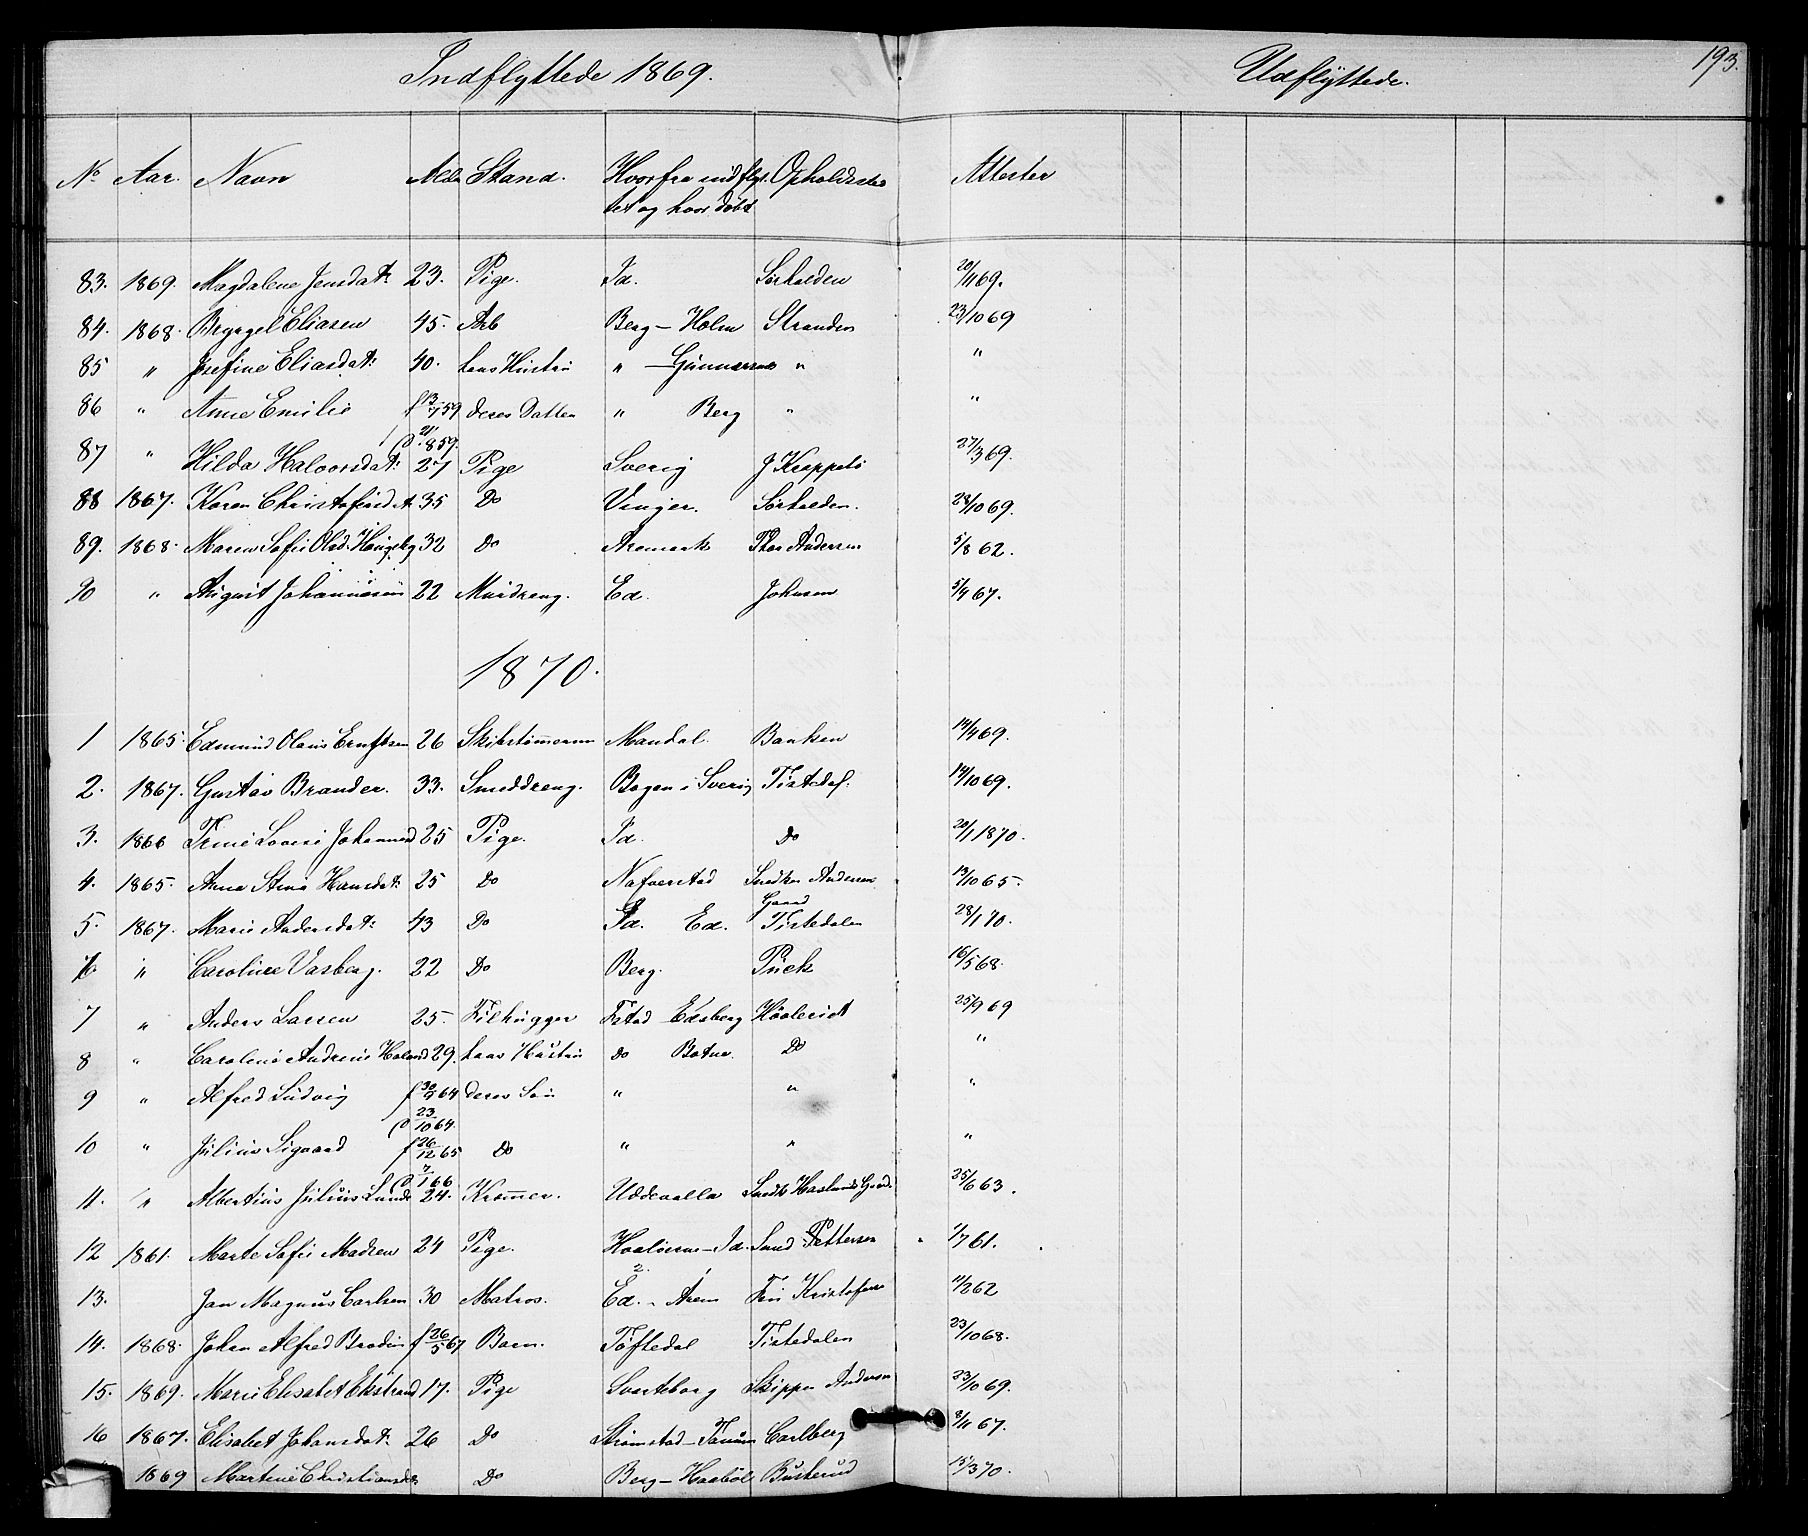 Indflyttede 1869. Udflyttede. 193.
No Aar. Navn Alder Stand. Hvorfra indflyt- Opholdssted Attester
tet og hvor døbt
83. 1869. Magdalene Jensdat: 23. Pige. Id. Sørhalden 20/11 69.
84. 1868. Bryngel Eliasen 45. Arb Berg - Holm Stranden 23/10 69
85 " Josefine Eliasdat: 40. hans Hustru " - Gunnarsnes " "
86 " Anne Emilie f 13/7 59 deres Datter " Berg " "
D 21/8 59.
87 " Hilda Halvorsdat: 27 Pige Sverig J Kroppelö 27/3 69.
88 1867. Karen Christofersdat 35 Do Vinger. Sørhalden. 28/10 69.
89. 1868. Maren Sofie Olsd. Haugsby 32 Do Aremark Thor Andersen 5/8 62.
90 " August Johannesen 22 Murdreng. Ed. Johnsen 5/9 67.
1870.
1 1865. Edmund Olaus Erntsen 26 Skibstømmerm Mandal. Banken 14/4 69.
2. 1867. Gustav Brander. 33. Smeddreng. Bogen i Sverig Tistedal. 14/10 69.
3. 1866 Trine Lovise Johannesd 25 Pige. Id. Do 20/1 1870.
4. 1865. Anna Stina Hansdat: 25 Do Nafverstad Snedker Andersen 13/10 65.
Gaard
5. 1867. Marie Andersdat: 43 Do Id. Ed. Tistedalen 28/1 70.
6. " Caroline Vasberg. 22 Do Berg. Puck 16/5 68.
7 " Anders Larsen 25. Filhugger Fstad - Edsberg Høvleridt 25/9 69
8 " Caroline Andrine Haland 29. hans Hustru do Botne. Do "
9 " Alfred Ludvig f 30/9 64 deres Søn " " "
D 23/10 64.
10 " Julius Sigvard f 26/12 65 Do " " "
D 7/1 66
11. " Albertius Julius Lunde 24. Kræmmer. Uddevalla Snedk Haslunds Gaard. 25/6 63.
12 1861. Marte Sofie Madsen 24 Pige. - Id. Sund Pettersen 1/7 61.
2. 1
13. Jan Magnus Carlsen 30 Matros. Ed. - Arem Fru Kristofersen 11/2 62
14. 1868. Johan Alfred Brodin f 26/5 67 Barn. Töftedal Tistedalen 23/10 68.
15. 1869. Marie Elisabet Ekstrand 17. Pige Svarteborg Skipper Andersen 23/10 69.
16 1867. Elisabet Johansdat: 26 Do Strømstad - Tanum Carlberg 8/11 67.
1869 Martine Christiansdat Do Berg - Haabøl Busterud 15/3 70.